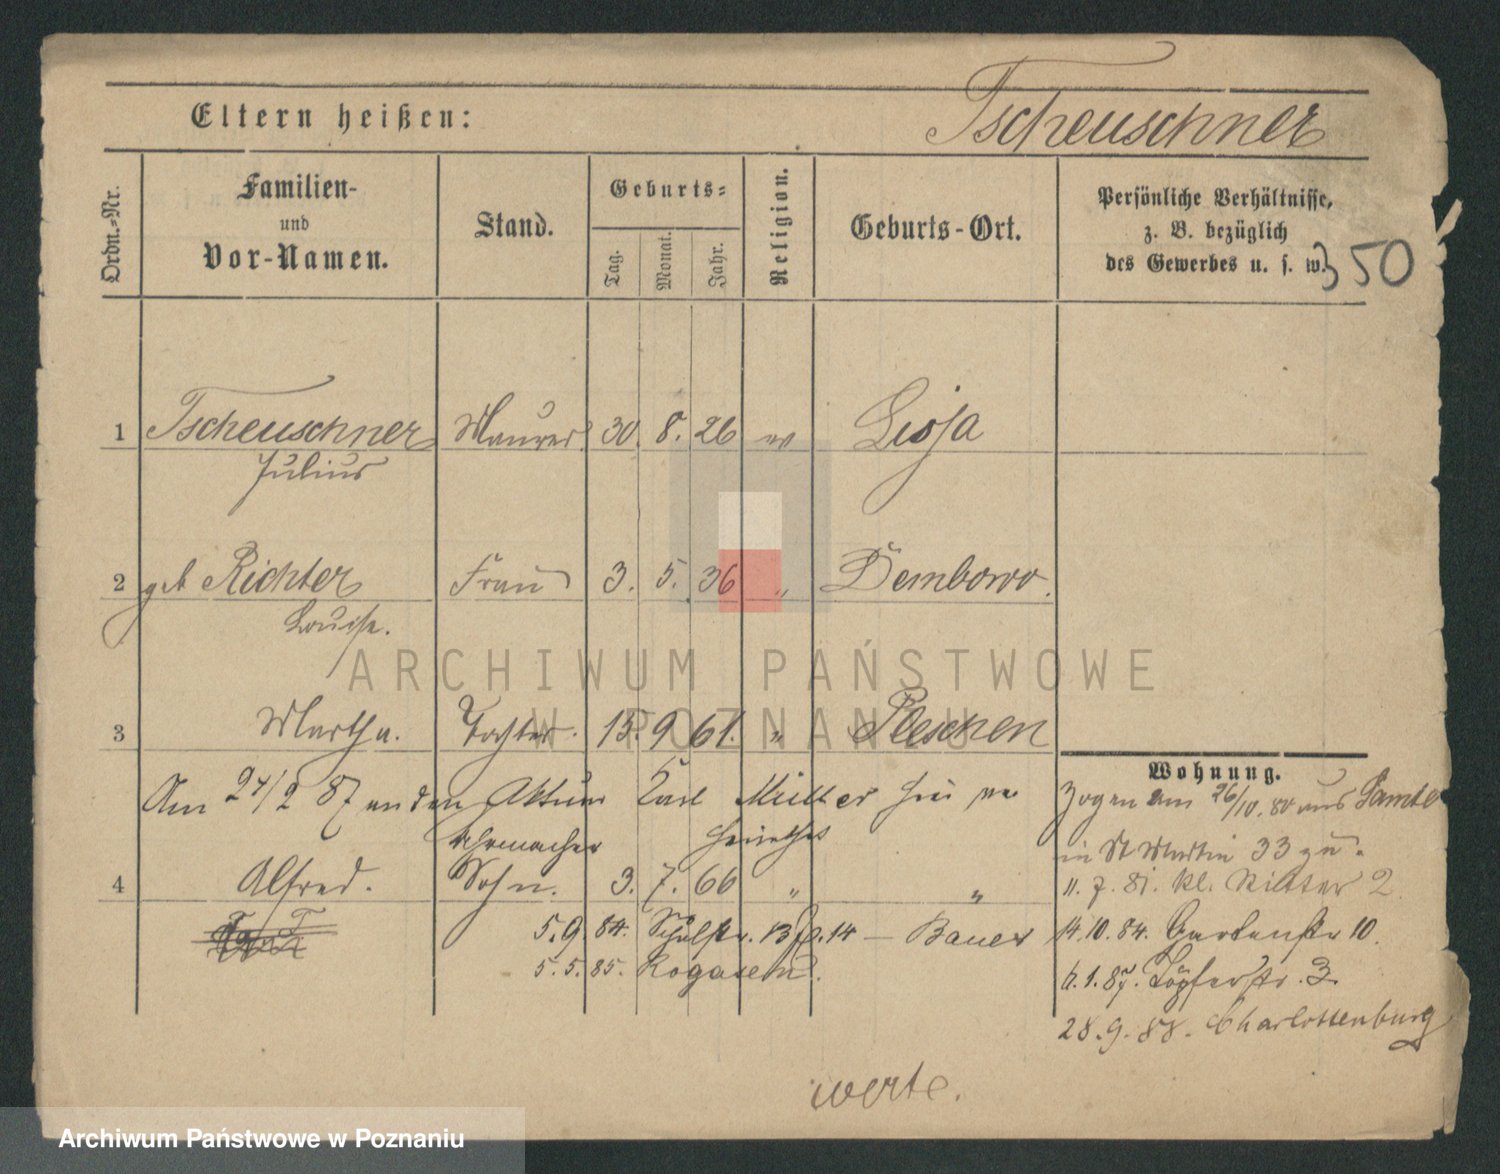 Eltern heißen: Tscheuschner
Ordn.-Nr.
Familien-
und
Vor-Namen.
Stand.
Geburts-
Tag.
Monat.
Jahr.
Religion.
Geburts-Ort.
Persönliche Verhältnisse,
z. B. bezüglich
des Gewerbes u. s. w.
350
1 Tscheuschner Maurer 30. 8. 26 ev
Julius
2 geb Richter Frau 3. 5. 36 " Dembowo.
Louise.
ARCHIWUM PAŃSTWOWE
W POZNANIU
3 Martha. Tochter. 15. 9 61. " Pleschen
Wohnung.
Am 24/2 87 an den Aktuar Karl Müller
Zogen am 26/10. 80 aus
Uhrmacher
in St Martin 33 zu.
4 Alfred. Sohn. 3. 7. 66 " "
11. 7. 81. kl. Ritter 2
5. 9. 84. Schulstr. 13 14 — Bauer
14. 10. 84. Gartenstr 10.
5. 5. 85. Rogasen
1. 87. Töpferstr. 3.
28. 9. 88. Charlottenburg
werte.
Archiwum Państwowe w Poznaniu